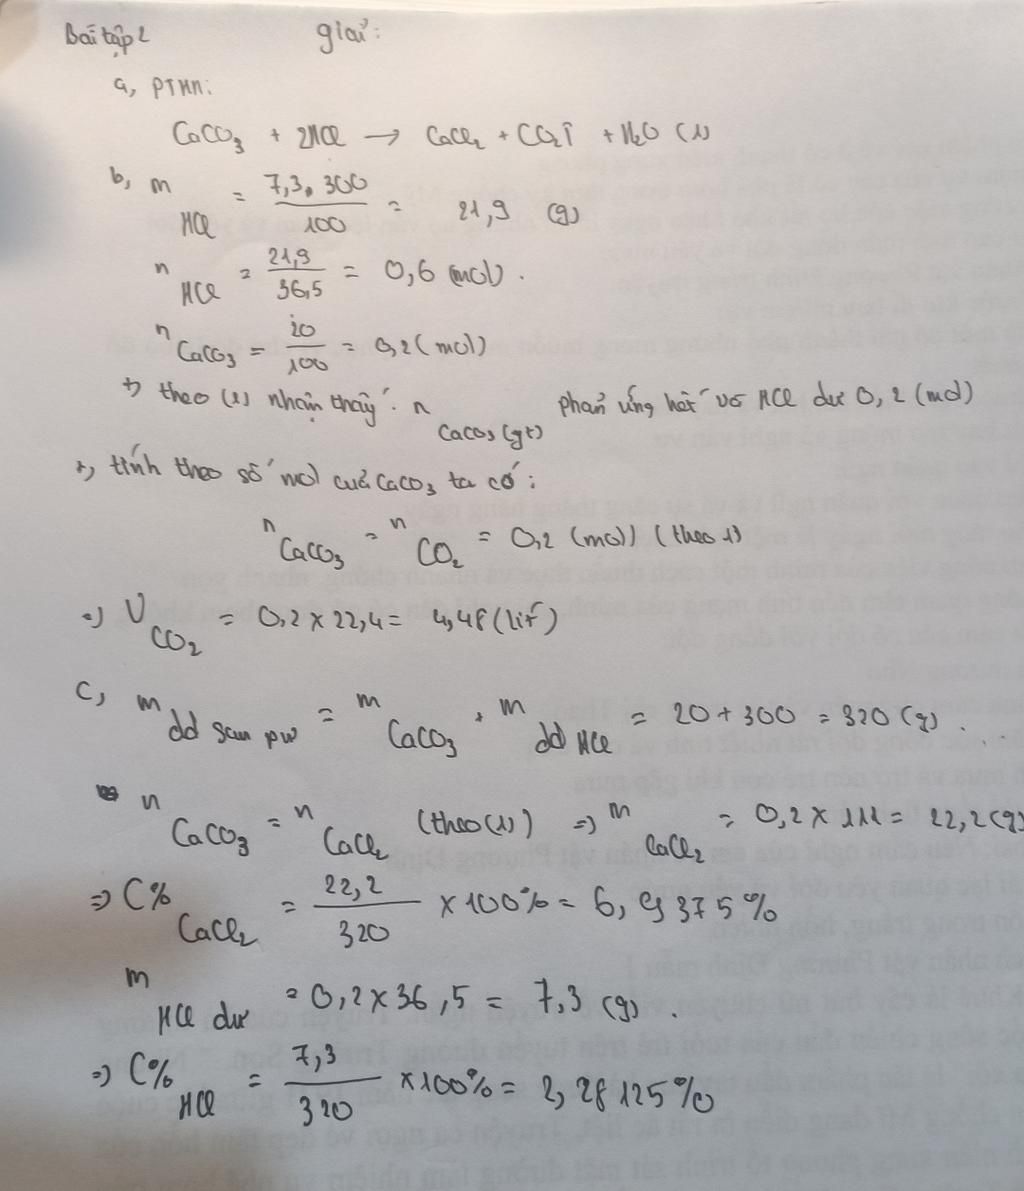 Bài tập 2 giải:
a, PTHH:
CaCO₃ + 2HCl → CaCl₂ + CO₂↑ + H₂O (1)
b, m HCl = 7,3.300 / 100 = 21,9 (g)
n HCl = 21,9 / 36,5 = 0,6 (mol).
n CaCO₃ = 20 / 100 = 0,2 (mol)
+, theo (1) nhận thấy. n CaCO₃ (gt) phản ứng hết và HCl dư 0,2 (mol)
+, tính theo số mol của CaCO₃ ta có:
n CaCO₃ = n CO₂ = 0,2 (mol) (theo 1)
=> V CO₂ = 0,2 x 22,4 = 4,48 (lít)
c, m dd sau pư = m CaCO₃ + m dd HCl = 20 + 300 = 320 (g).
n CaCO₃ = n CaCl₂ (theo (1)) => m CaCl₂ = 0,2 x 111 = 22,2 (g)
=> C% CaCl₂ = 22,2 / 320 x 100% = 6,9375%
m HCl dư = 0,2 x 36,5 = 7,3 (g).
=> C% HCl = 7,3 / 320 x 100% = 2,28125%